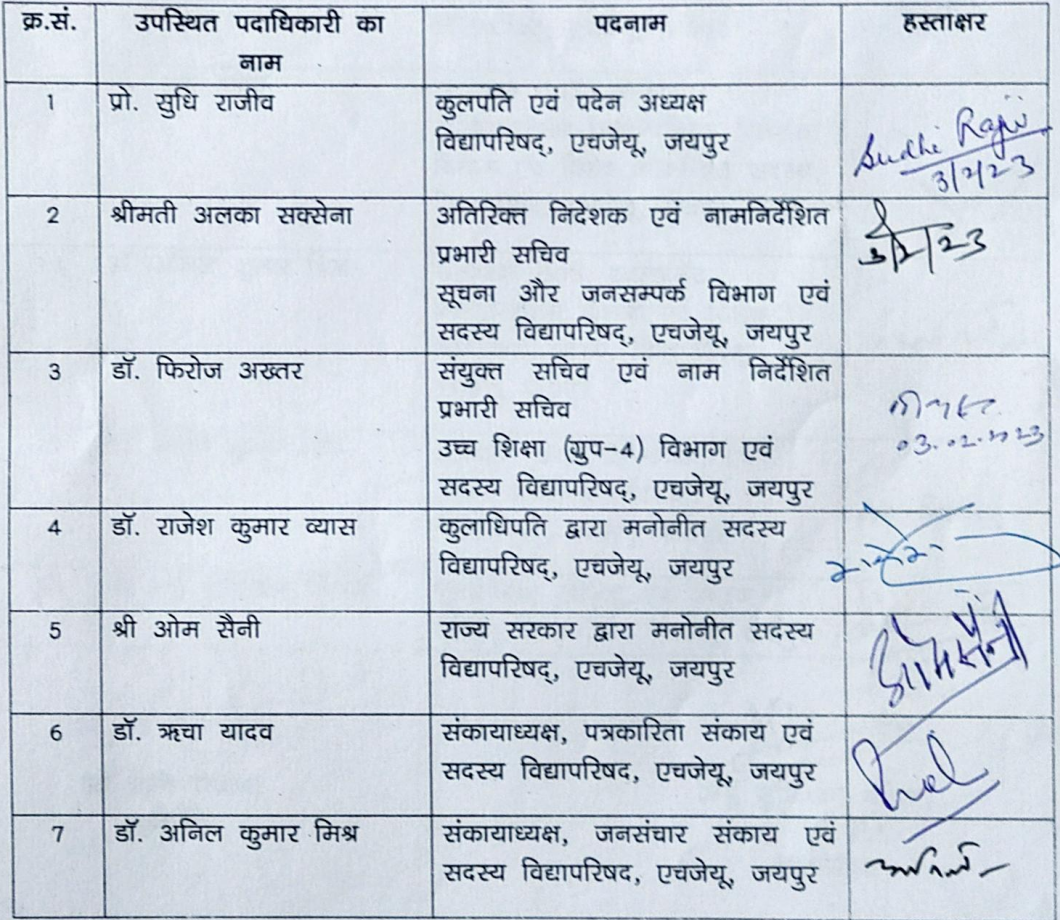 क्र.सं. उपस्थित पदाधिकारी का पदनाम हस्ताक्षर
नाम
1 प्रो. सुधि राजीव कुलपति एवं पदेन अध्यक्ष
विद्यापरिषद्, एचजेयू, जयपुर Sudhi Rajiv
3/2/23
2 श्रीमती अलका सक्सेना अतिरिक्त निदेशक एवं नामनिर्देशित
प्रभारी सचिव 3/2/23
सूचना और जनसम्पर्क विभाग एवं
सदस्य विद्यापरिषद्, एचजेयू, जयपुर
3 डॉ. फिरोज अख्तर संयुक्त सचिव एवं नाम निर्देशित
प्रभारी सचिव
उच्च शिक्षा (ग्रुप-4) विभाग एवं 03.02.2023
सदस्य विद्यापरिषद्, एचजेयू, जयपुर
4 डॉ. राजेश कुमार व्यास कुलाधिपति द्वारा मनोनीत सदस्य
विद्यापरिषद्, एचजेयू, जयपुर
5 श्री ओम सैनी राज्य सरकार द्वारा मनोनीत सदस्य
विद्यापरिषद्, एचजेयू, जयपुर ओम सैनी
6 डॉ. ऋचा यादव संकायाध्यक्ष, पत्रकारिता संकाय एवं
सदस्य विद्यापरिषद, एचजेयू, जयपुर
7 डॉ. अनिल कुमार मिश्र संकायाध्यक्ष, जनसंचार संकाय एवं
सदस्य विद्यापरिषद, एचजेयू, जयपुर